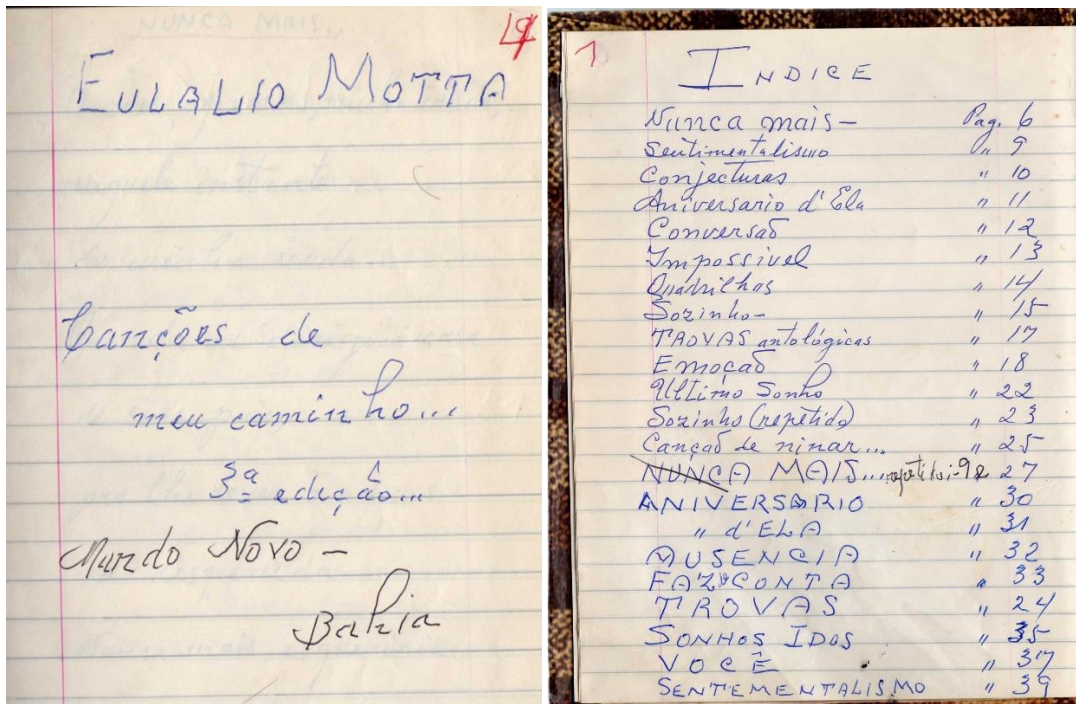 EULALIO MOTTA
Canções de
meu caminho...
3ª edição...
Mundo Novo —
Bahia
1
INDICE
Nunca mais — Pag. 6
Sentimentalismo " 9
Conjecturas " 10
Aniversario d'Ela " 11
Conversaõ " 12
Impossivel " 13
Quadrilhas " 14
Sozinho — " 15
TROVAS antológicas " 17
Emoçaõ " 18
Ultimo Sonho " 22
Sozinho (repetido) " 23
Cançaõ de ninar... " 25
NUNCA MAIS... 27
ANIVERSARIO " 30
" d'ELA " 31
AUSENCIA " 32
FAZ CONTA " 33
TROVAS " 24
SONHOS IDOS " 35
VOCÊ " 37
SENTEMENTALISMO " 39